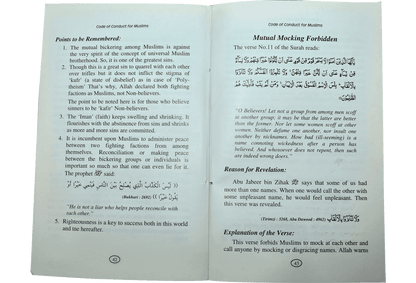 Code of Conduct for Muslims
Points to be Remembered:
1. The mutual bickering among Muslims is against
the very spirit of the concept of universal Muslim
brotherhood. So, it is one of the greatest sins.
2. Though this is a great sin to quarrel with each other
over trifles but it does not inflict the stigma of
'kufr' (a state of disbelief) as in case of 'Poly-
theism' That's why, Allah declared both fighting
factions as Muslims, not Non-believers.
The point to be noted here is for those who believe
sinners to be 'kafir' Non-believers.
3. The 'Iman' (faith) keeps swelling and shrinking. It
flourishes with the abutinence from sins and shrinks
as more and more sins are committed.
4. It is incumbent upon Muslims to administer peace
between two fighting factions from among
themselves. Reconciliation or making peace
between the bickering groups or individuals is
important so much so that one can even lie for it.
The prophet ﷺ said:
(( لَيْسَ الْكَذَّابُ الَّذِي يُصْلِحُ بَيْنَ النَّاسِ فَيَنْمِي خَيْرًا أَوْ
يَقُولُ خَيْرًا )) (Bukhari : 2692)
"He is not a liar who helps people reconcile with
each other."
5. Righteousness is a key to success both in this world
and the hereafter.
42
Code of Conduct for Muslims
Mutual Mocking Forbidden
The verse No.11 of the Surah reads:
"O Believers! Let not a group from among men scoff
at another group; it may be that the latter are better
than the former. Nor let some women scoff at other
women. Neither defame one another, nor insult one
another by nicknames. How bad (ill-seeming) is a
name connoting wickedness after a person has
believed. And whosoever does not repent, then such
are indeed wrong doers."
Reason for Revelation:
Abu Jabeer bin Zihak says that some of us had
more than one names. When one would call the other with
some unpleasant name, he would feel unpleasant. Then
this verse was revealed.
(Tirmzi : 3268, Abu Dawood : 4962) وَلَا تَنَابَزُوا بِالْأَلْقَابِ
Explanation of the Verse:
This verse forbids Muslims to mock at each other and
call anyone by mocking or disgracing names. Allah warns
43